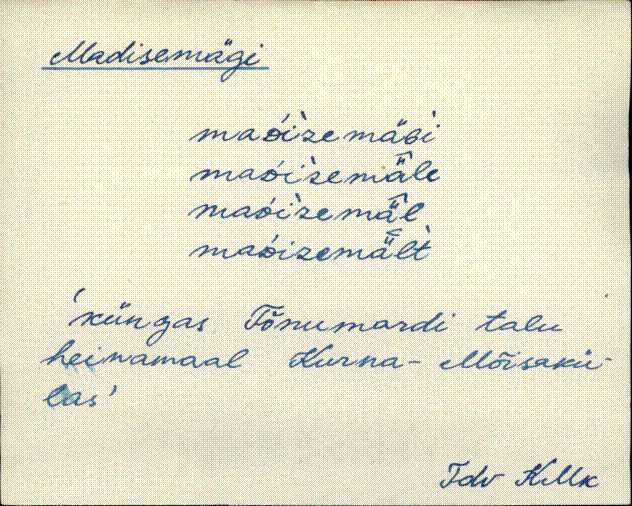 Madisemägi
maδ́i̬zemäɢi
maδ́i̬zemä̂le
maδ́i̬zemä̂l
maδ́i̬zemä̂lt
'küngas Tõnumardi talu
heinamaal Kurna-Mõisakü-
las'
Jdv KMk